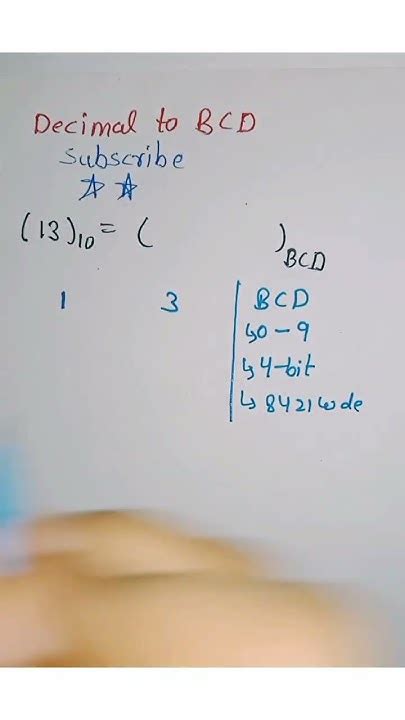 Decimal to BCD
Subscribe
(13)10 = ( )BCD
1 3
BCD
↳ 0-9
↳ 4-bit
↳ 8421 code